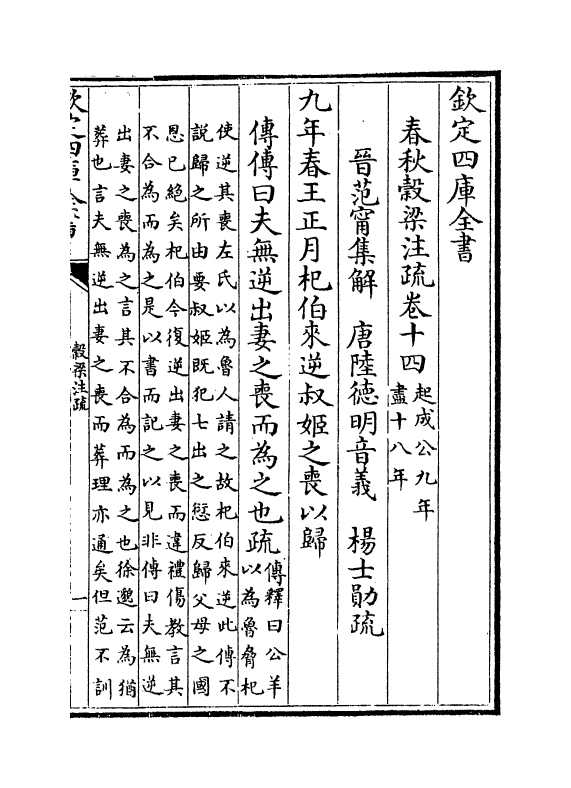 欽定四庫全書
春秋穀梁注疏卷十四
起成公九年
盡十八年
晉范甯集解　唐陸德明音義　楊士勛疏
九年春王正月杞伯來逆叔姬之喪以歸
傳傳曰夫無逆出妻之喪而為之也疏
傳釋曰公羊
以為魯脅杞
使逆其喪左氏以為魯人請之故杞伯來逆此傳不
說歸之所由要叔姬既犯七出之愆反歸父母之國
恩已絕矣杞伯今復逆出妻之喪而違禮傷教言其
不合為而為之是以書而記之以見非傳曰夫無逆
出妻之喪為之言其不合為而為之也徐邈云為猶
葬也言夫無逆出妻之喪而葬理亦通矣但范不訓
欽定四庫全書
穀梁注疏
一